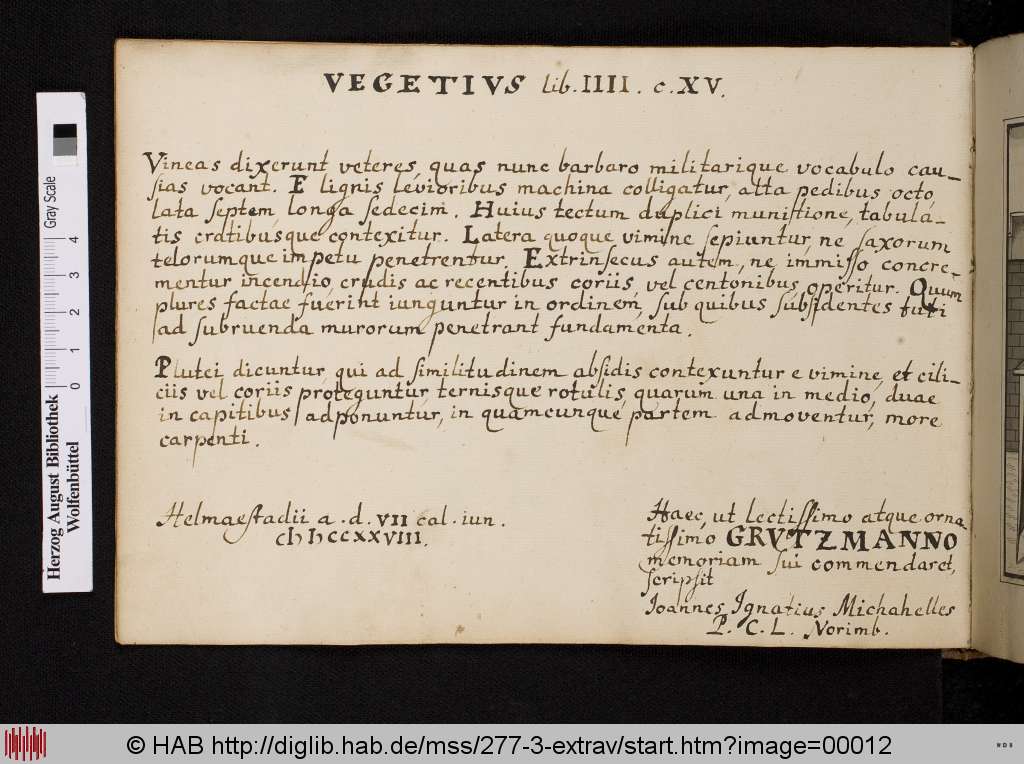 VEGETIVS lib. IIII. c. XV.
Vineas dixerunt veteres, quas nunc barbaro militarique vocabulo cau-
sias vocant. E lignis levioribus machina colligatur, alta pedibus octo,
lata septem, longa sedecim. Huius tectum duplici munitione, tabula-
tis cratibusque contexitur. Latera quoque vimine sepiuntur, ne saxorum
telorumque impetu penetrentur. Extrinsecus autem, ne immisso concre-
mentur incendio, crudis ac recentibus coriis, vel centonibus operitur. Quum
plures factae fuerint iunguntur in ordinem, sub quibus subsidentes tuti
ad subruenda murorum penetrant fundamenta.
Plutei dicuntur, qui ad similitudinem absidis contexuntur e vimine, et cili-
ciis vel coriis proteguntur, ternisque rotulis, quarum una in medio, duae
in capitibus adponuntur, in quamcunque partem admoventur, more
carpenti.
Helmaestadii a. d. VII cal. iun.
cIↄ IↄccXXVIII.
Haec, ut lectissimo atque orna
tissimo GRVTZMANNO
memoriam sui commendaret,
scripsit
Ioannes Ignatius Michahelles
P. C. L. Norimb.
Herzog August Bibliothek
Wolfenbüttel
Gray Scale
0 1 2 3 4
© HAB http://diglib.hab.de/mss/277-3-extrav/start.htm?image=00012